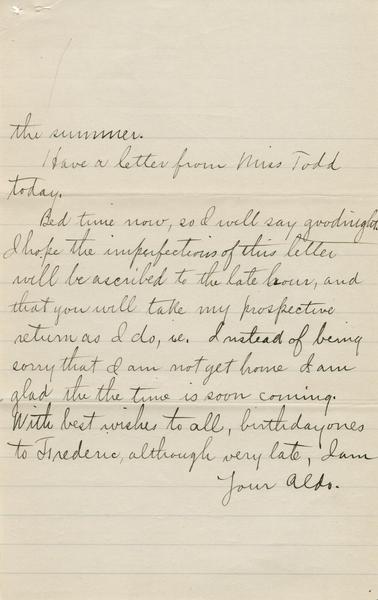 the summer.
Have a letter from Miss Todd
today.
Bed time now, so I will say goodnight.
I hope the imperfections of this letter
will be ascribed to the late hour, and
that you will take my prospective
return as I do, ie. Instead of being
sorry that I am not yet home I am
glad the the time is soon coming.
With best wishes to all, birthday ones
to Frederic, although very late, I am
Your Aldo.